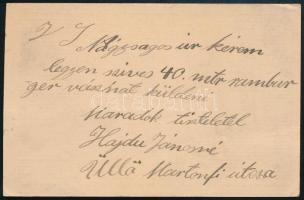 Nagysagos úr kérem
legyen szives 40. mtr rambur
ger vásznat küldeni
maradok tisztelettel
Hajdu Jánosné
Üllő Martonfi útcza